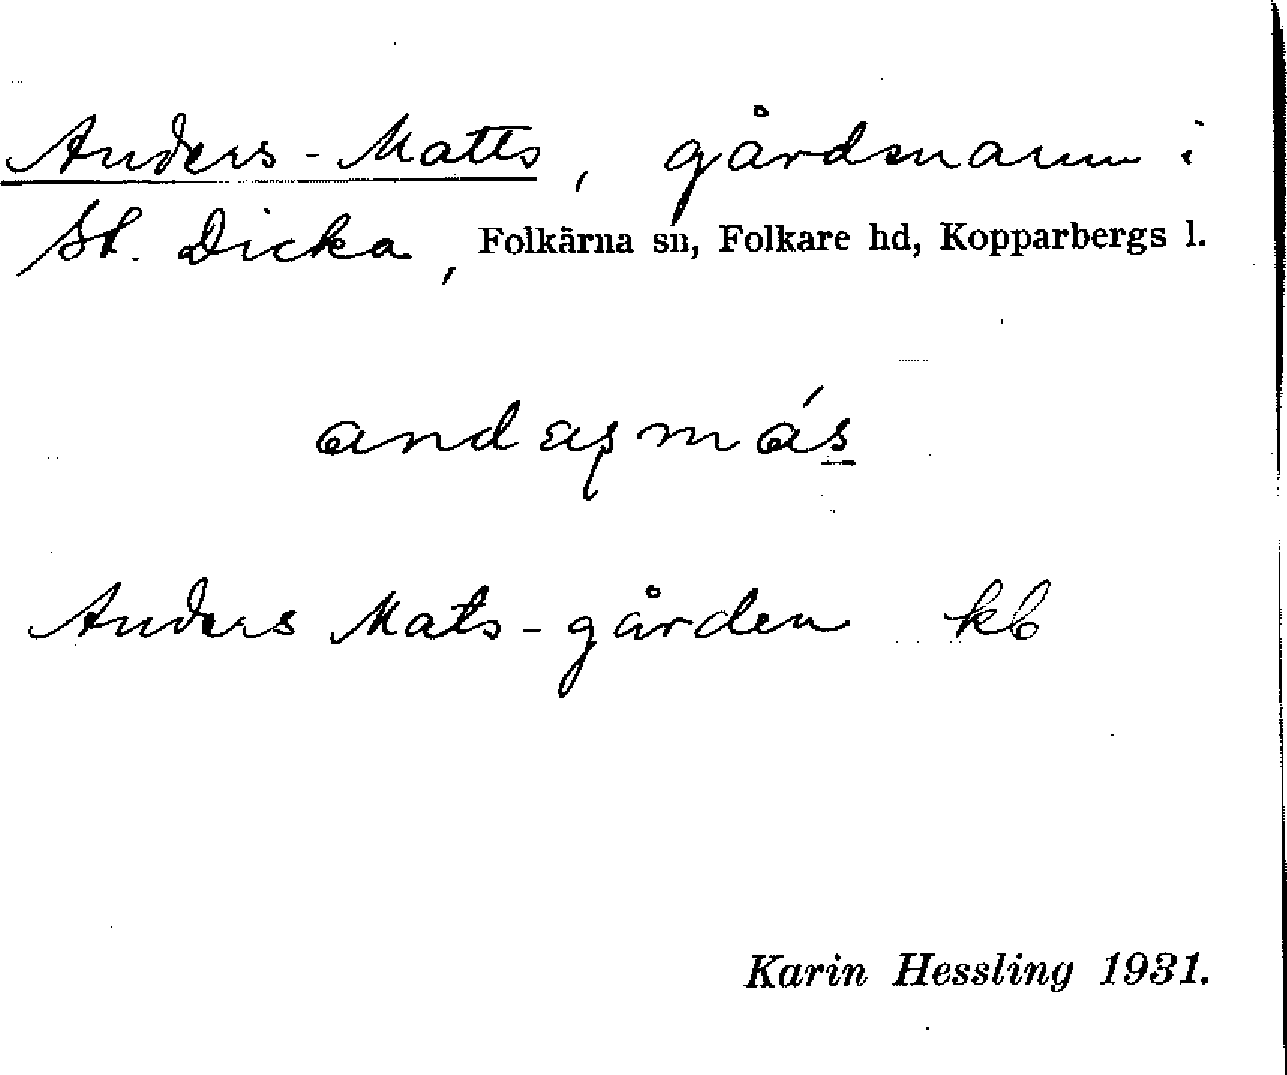 Anders-Matts, gårdsnamn i
St. Dicka, Folkärna sn, Folkare hd, Kopparbergs l.
Anders Mats-gården kb
Karin Hessling 1931.